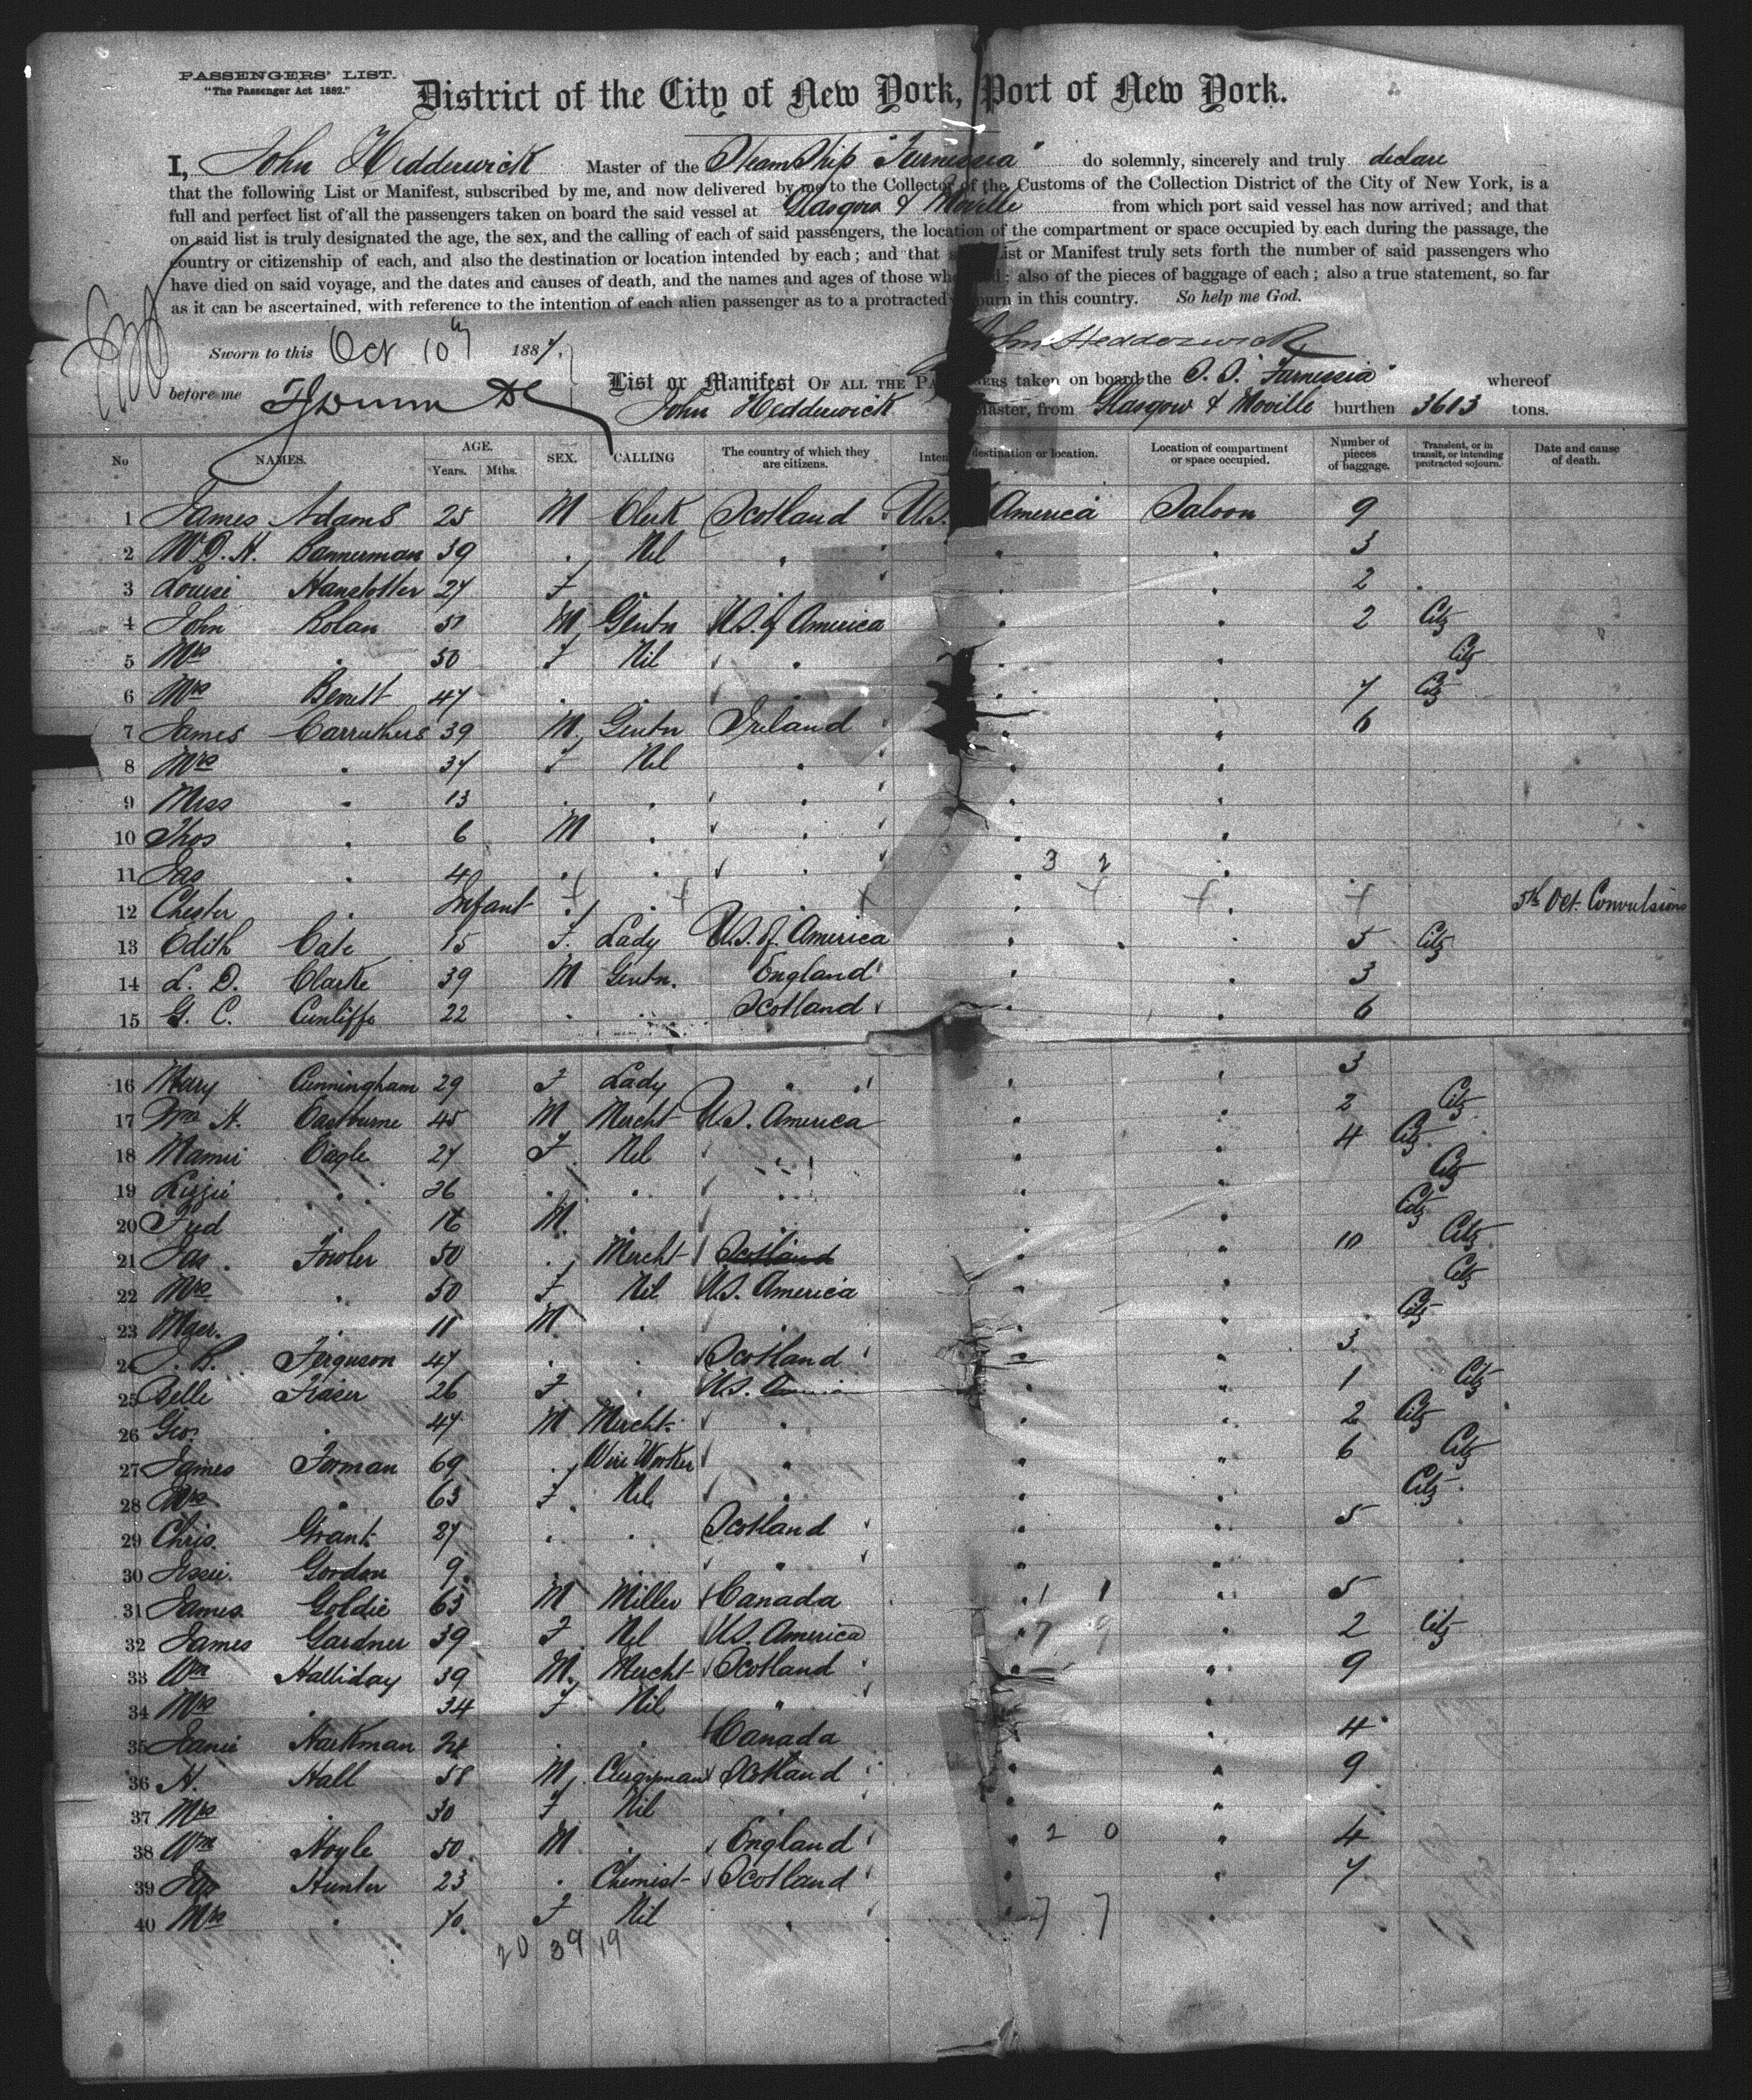 PASSENGERS' LIST.
"The Passenger Act 1882."
District of the City of New York, Port of New York.
I, John Hedderwick Master of the Steam Ship "Furnessia" do solemnly, sincerely and truly declare
that the following List or Manifest, subscribed by me, and now delivered by me to the Collector of the Customs of the Collection District of the City of New York, is a
full and perfect list of all the passengers taken on board the said vessel at Glasgow & Moville from which port said vessel has now arrived; and that
on said list is truly designated the age, the sex, and the calling of each of said passengers, the location of the compartment or space occupied by each during the passage, the
country or citizenship of each, and also the destination or location intended by each; and that List or Manifest truly sets forth the number of said passengers who
have died on said voyage, and the dates and causes of death, and the names and ages of those who; also of the pieces of baggage of each; also a true statement, so far
as it can be ascertained, with reference to the intention of each alien passenger as to a protracted in this country. So help me God.
John Hedderwick
Sworn to this Oct 10th 1887,
before me
List or Manifest OF ALL THE PA ERS taken on board the S.S. "Furnessia" whereof
John Hedderwick Master, from Glasgow & Moville burthen 3613 tons.
No NAMES. AGE. Years. Mths. SEX. CALLING The country of which they are citizens. Inten destination or location. Location of compartment or space occupied. Number of pieces of baggage. Transient, or in transit, or intending protracted sojourn. Date and cause of death.
1 James Adams 25 M Clerk Scotland U.S. America Saloon 9
2 Bannerman 39 " Nil " " " 3
3 Louise 27 F " " 2
4 John Bolan 51 M Gentn U.S. of America " " 2 Citz
5 Mrs " 50 F Nil " " " Citz
6 Mrs 47 " " " " 7 Citz
7 James Carruthers 39 M Gentn Ireland " " 6
8 Mrs " 37 F Nil " " "
9 Miss " 13 " " " " "
10 Thos " 6 M " " " "
11 Jas " 4 " " " 3 2
12 Chester " Infant " " " " 5th Oct. Convulsions
13 Edith Cate 15 F. Lady U.S. of America " " 5 Citz
14 L. D. Clarke 39 M Gentn. England " " 3
15 G. C. Cunliffe 22 " " Scotland " " 6
16 Mary Cunningham 29 F Lady " " " 3
17 Wm H. Eastburne 45 M Mercht U.S. America " " 2 Citz
18 Mamie Eagle 27 F Nil " " " 4 Citz
19 Lizzie " 26 " " " " " Citz
20 Fred " 16 M " " " " Citz
21 Jas. Fowler 50 " Mercht Scotland " " 10 Citz
22 Mrs " 50 F Nil U.S. America " " Citz
23 Mser. " 11 M " " " " Citz
24 J. B. Ferguson 47 " " Scotland " " 3
25 Belle Fraser 26 F " U.S. America " " 1 Citz
26 Geo. " 47 M Mercht. " " " 2 Citz
27 James Forman 69 " Wire Worker " " " 6 Citz
28 Mrs " 63 F Nil " " " Citz
29 Chris. Grant 27 " " Scotland " " 5
30 Jessie Gordon 9 " " "
31 James Goldie 63 M Miller Canada 1 1 " 5
32 James Gardner 39 F Nil U.S. America 7 9 " 2 Citz
33 Wm Halliday 39 M. Mercht Scotland " " 9
34 Mrs " 34 F Nil " " "
35 Janie Harkman " " Canada " " 4
36 H. Hall 58 M Clergyman Scotland " " 9
37 Mrs " 30 F Nil " " "
38 Wm Hoyle 50 M " England 2 0 " 4
39 Hunter 23 " Chemist Scotland " " 7
40 Mrs " F Nil " 7 7 "
20 39 19